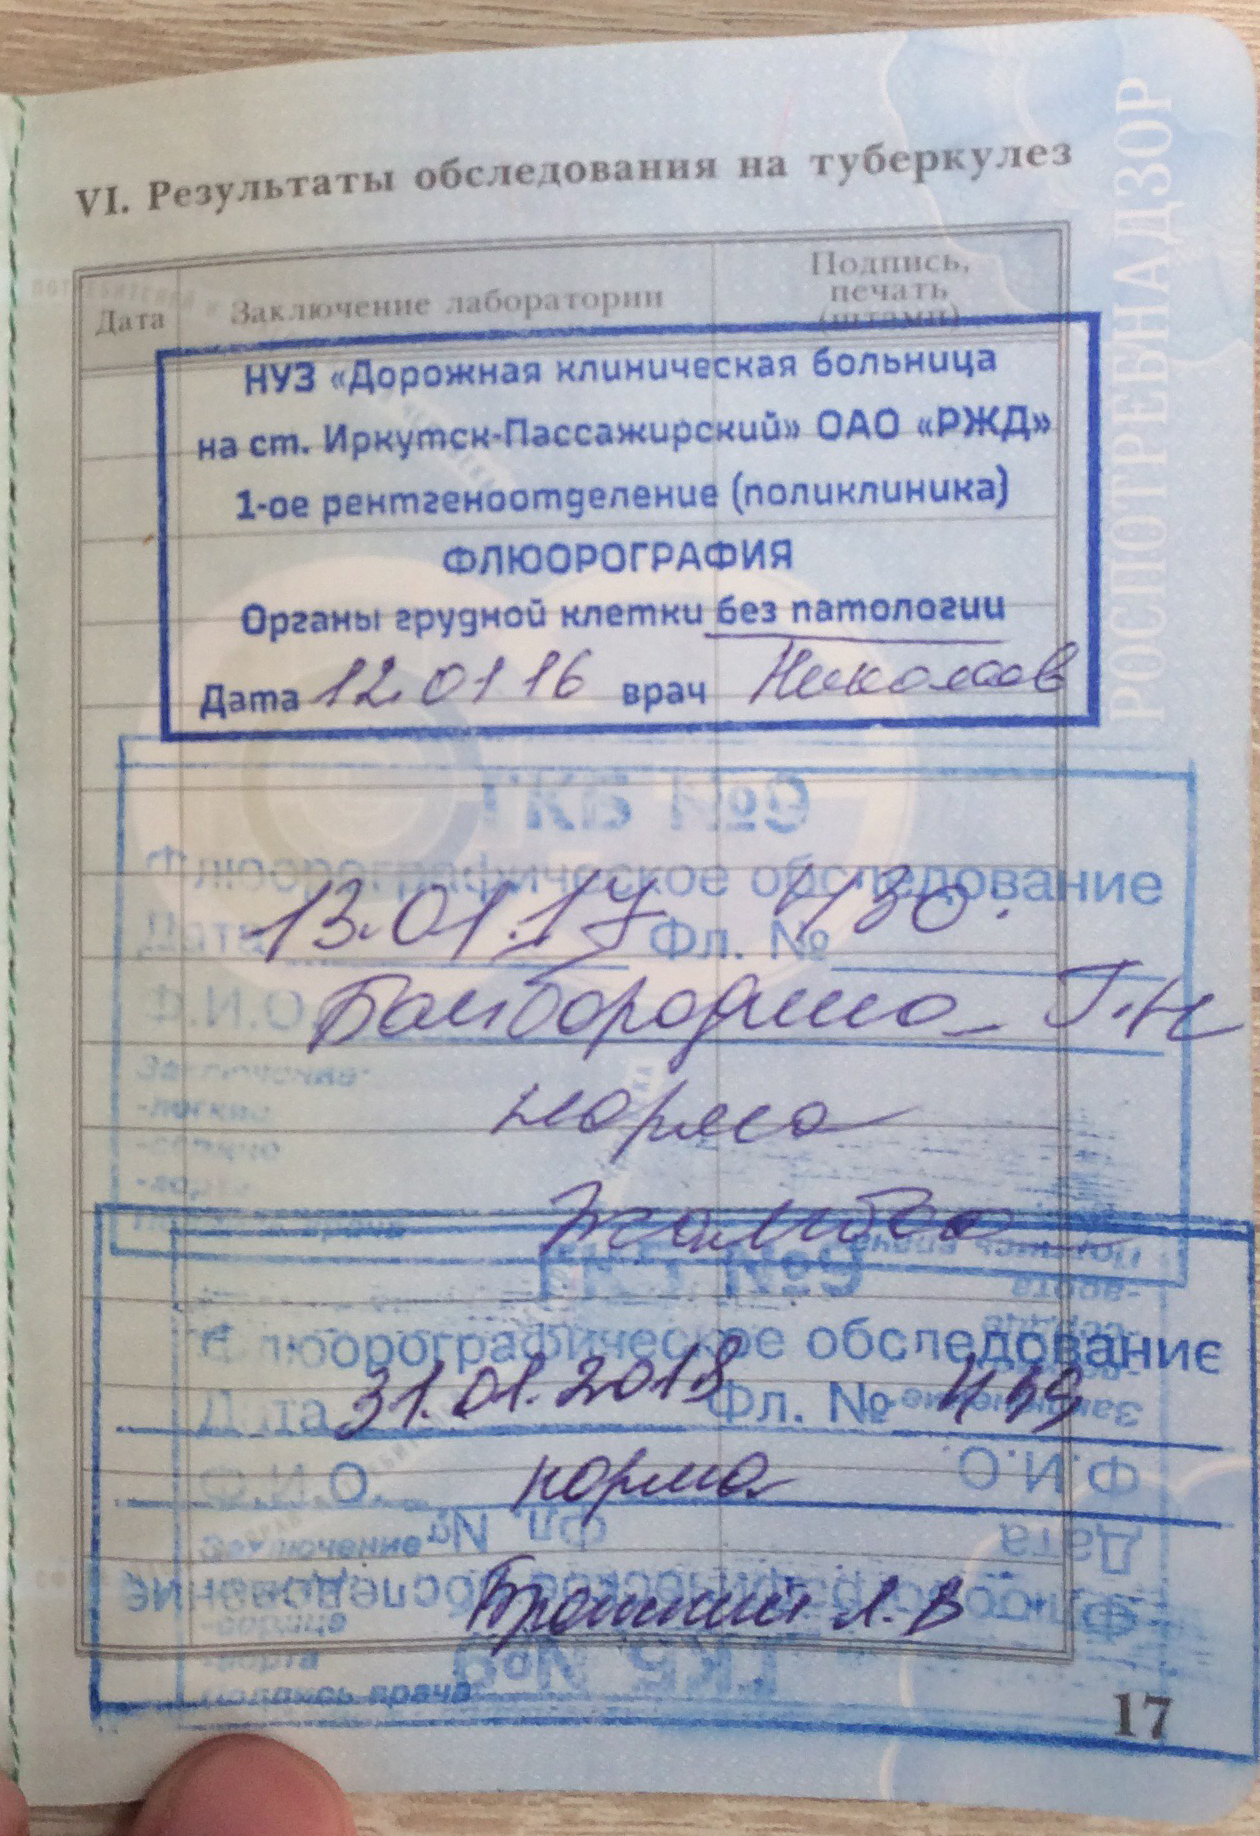 VI. Результаты обследования на туберкулез
Дата
Заключение лаборатории
Подпись,
печать
(штамп)
РОСПОТРЕБНАДЗОР
НУЗ «Дорожная клиническая больница
на ст. Иркутск-Пассажирский» ОАО «РЖД»
1-ое рентгеноотделение (поликлиника)
ФЛЮОРОГРАФИЯ
Органы грудной клетки без патологии
Дата 12.01 16 врач
ГКБ №9
Флюорографическое обследование
Дата 13.01.17 Фл. № 430.
Ф.И.О. Г.Н
Заключение:
-легкие
-сердце
-аорта
Подпись врача
норма
ГКБ №9
Флюорографическое обследование
Дата 31.01.2018 Фл. №
Ф.И.О. норма
Заключение
-сердце
-аорта
Подпись врача
17